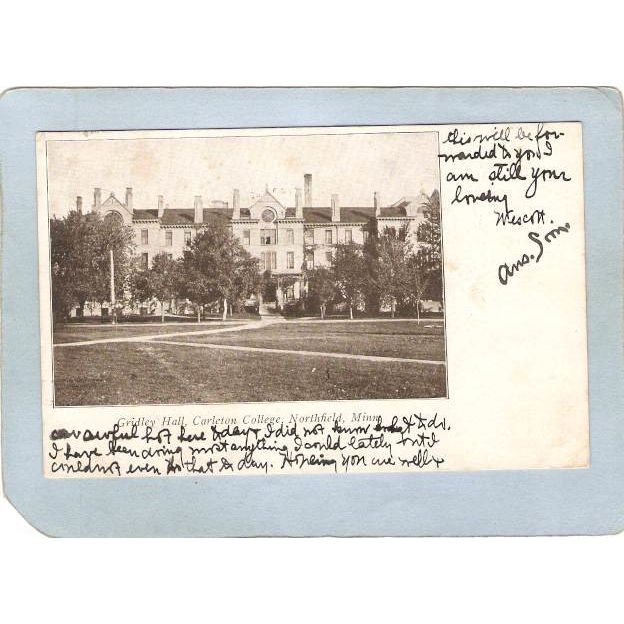 this will be for
warded to you I
am still your
loveing
Wescott.
Ans. Soon
Gridley Hall, Carleton College, Northfield, Minn.
awful hot here to day I did not know what to do.
I have been doing most anything I could lately but I
could not even do that to day. Hopeing you are well